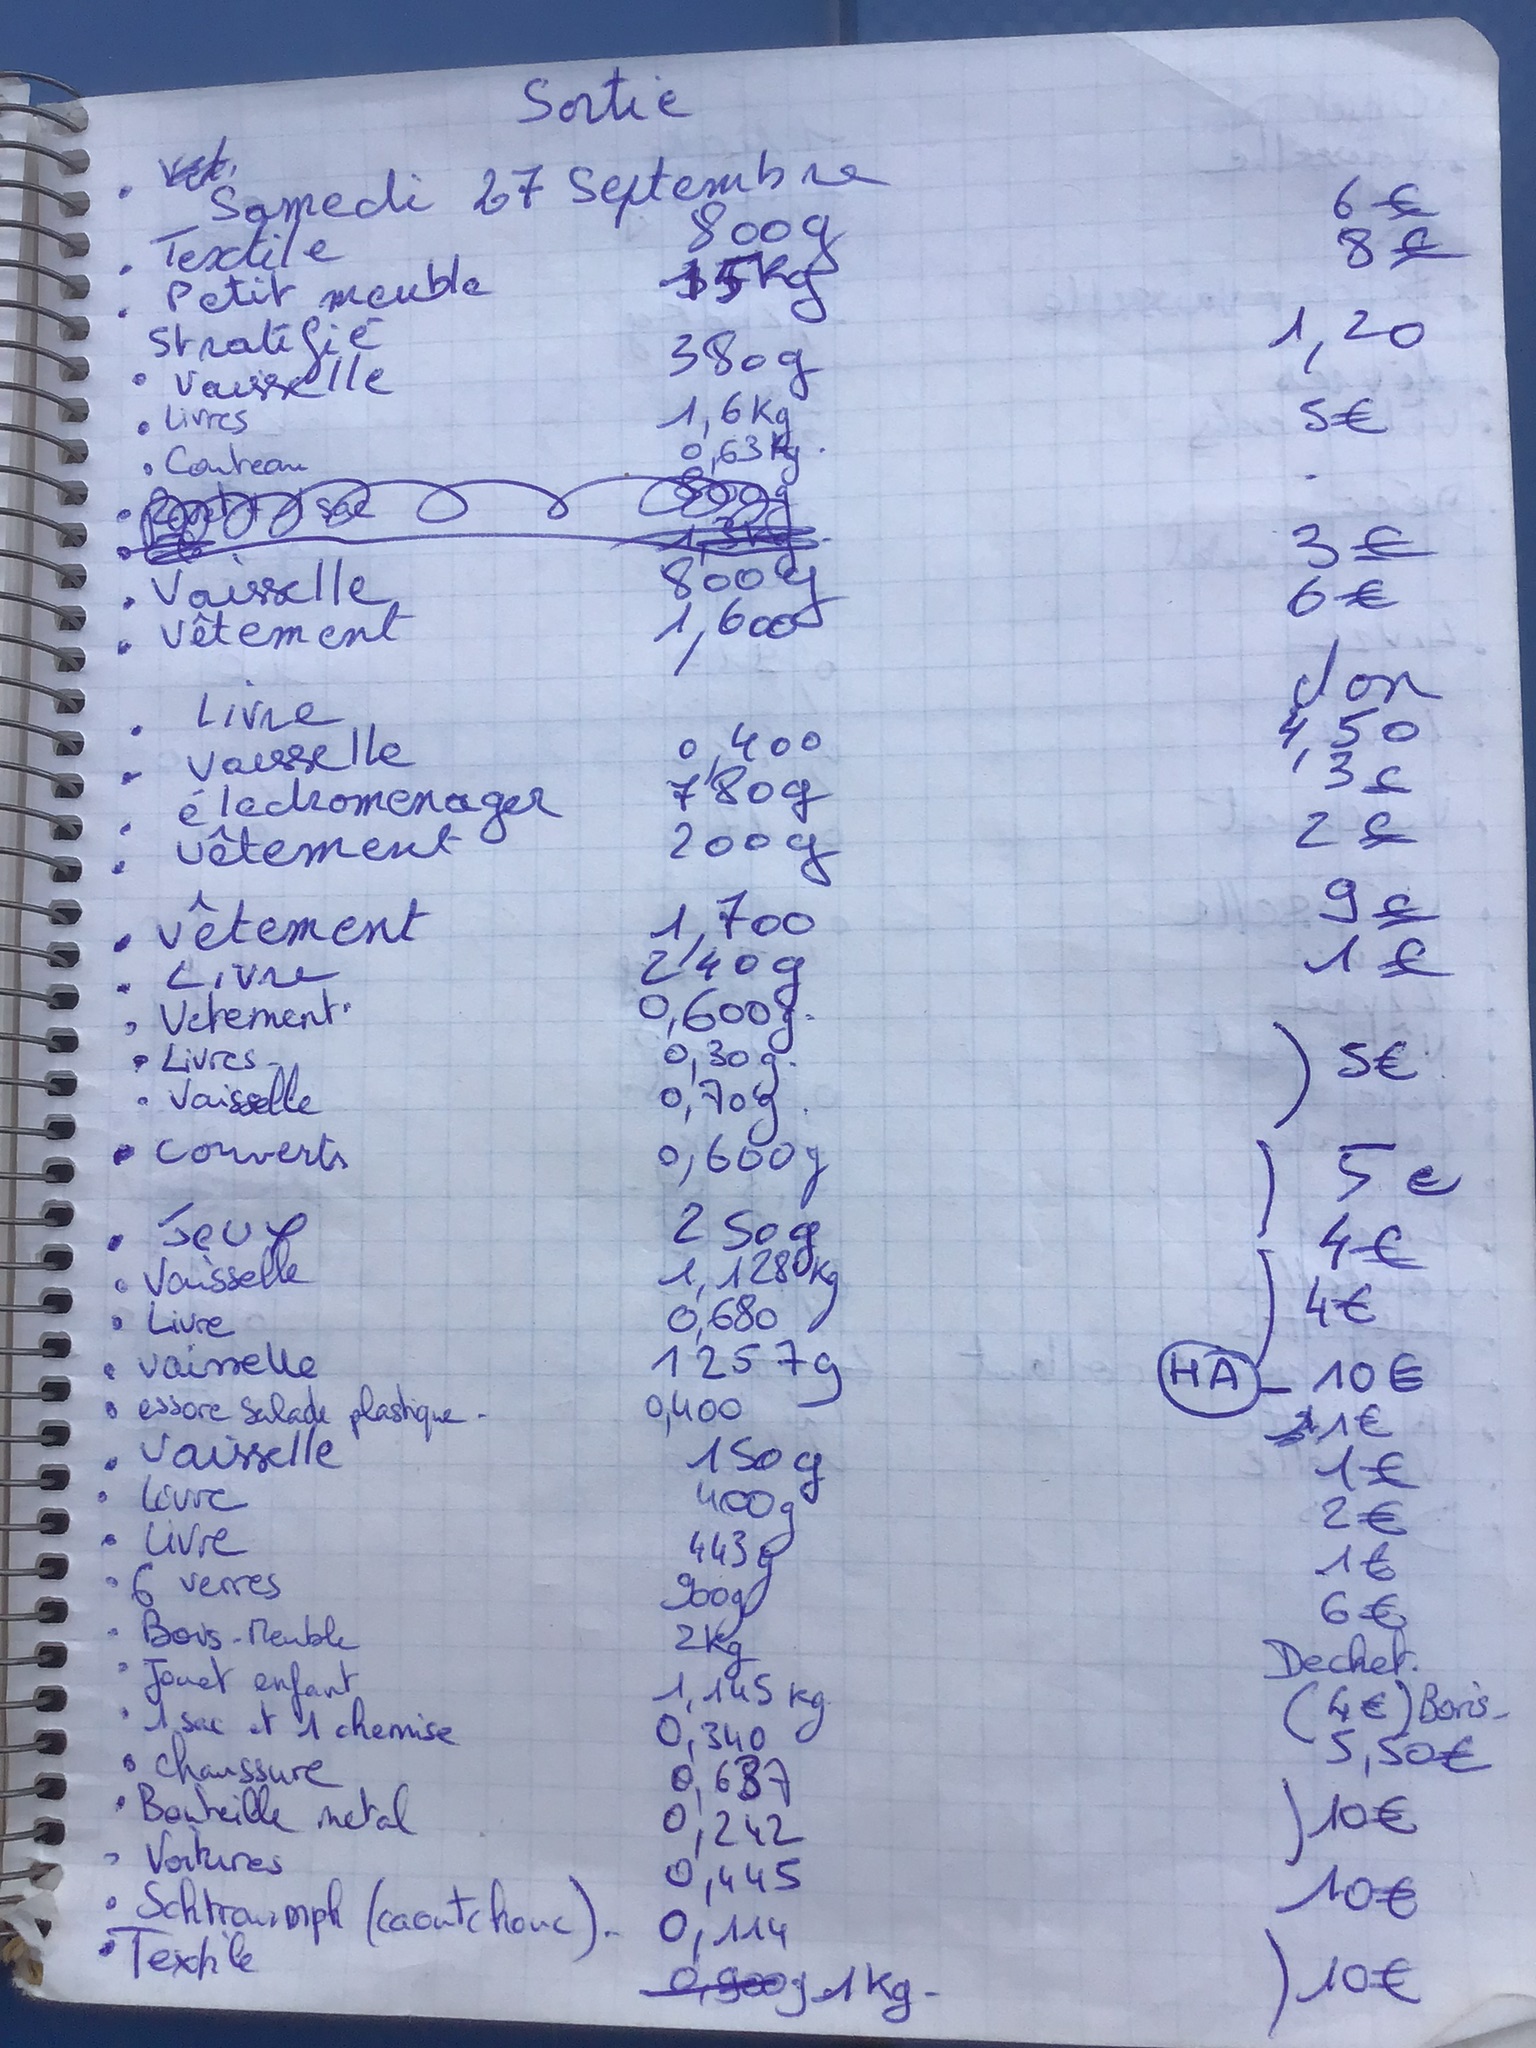 Sortie
Samedi 27 Septembre
• Textile 800g 6€
• Petit meuble 15Kg 8€
stratifié
• Vaisselle 380g 1,20
• Livres 1,6Kg 5€
• Couteau 0,63Kg.
• Vaisselle 800g 3€
• Vêtement 1,600 6€
• Livre don
• Vaisselle 0,400 4,50
• électromenager 780g 3€
• Vêtement 200g 2€
• Vêtement 1,700 9€
• Livre 240g 1€
• Vetement 0,600g.
• Livres 0,30g. ) 5€
• Vaisselle 0,70g.
• Couverts 0,600g ) 5€
• Jeux 250g 4€
• Vaisselle 1,128Kg
• Livre 0,680 4€
• Vaisselle 1257g HA - 10€
• essore salade plastique - 0,400 1€
• Vaisselle 150g 1€
• Livre 400g 2€
• Livre 443g 1€
• 6 verres 900g 6€
• Bois-Meuble 2Kg Dechet.
• Jouet enfant 1,145 Kg (4€) Boris-
• 1 sac et 1 chemise 0,340 5,50€
• Chaussure
• Bouteille metal 0,242 ) 10€
• Voitures 0,445 10€
• (caoutchouc). 0,114
• Textile 0,900g 1Kg- ) 10€